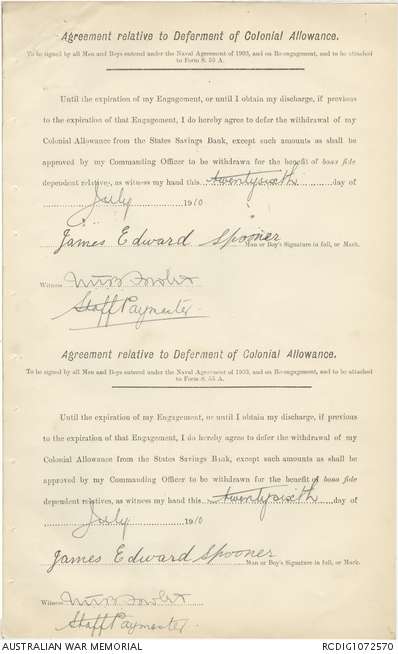 Agreement relative to Deferment of Colonial Allowance.
To be signed by all Men and Boys entered under the Naval Agreement of 1903, and on Re-engagement, and to be attached
to Form S. 55 A.
Until the expiration of my Engagement, or until I obtain my discharge, if previous
to the expiration of that Engagement, I do hereby agree to defer the withdrawal of my
Colonial Allowance from the States Savings Bank, except such amounts as shall be
approved by my Commanding Officer to be withdrawn for the benefit of bona fide
dependent relatives, as witness my hand this twentysixth day of
July 1910
James Edward Spooner Man or Boy's Signature in full, or Mark.
Witness
Staff Paymaster
Agreement relative to Deferment of Colonial Allowance.
To be signed by all Men and Boys entered under the Naval Agreement of 1903, and on Re-engagement, and to be attached
to Form S. 55 A.
Until the expiration of my Engagement, or until I obtain my discharge, if previous
to the expiration of that Engagement, I do hereby agree to defer the withdrawal of my
Colonial Allowance from the States Savings Bank, except such amounts as shall be
approved by my Commanding Officer to be withdrawn for the benefit of bona fide
dependent relatives, as witness my hand this twentysixth day of
July 1910
James Edward Spooner Man or Boy's Signature in full, or Mark.
Witness
Staff Paymaster
AUSTRALIAN WAR MEMORIAL RCDIG1072570